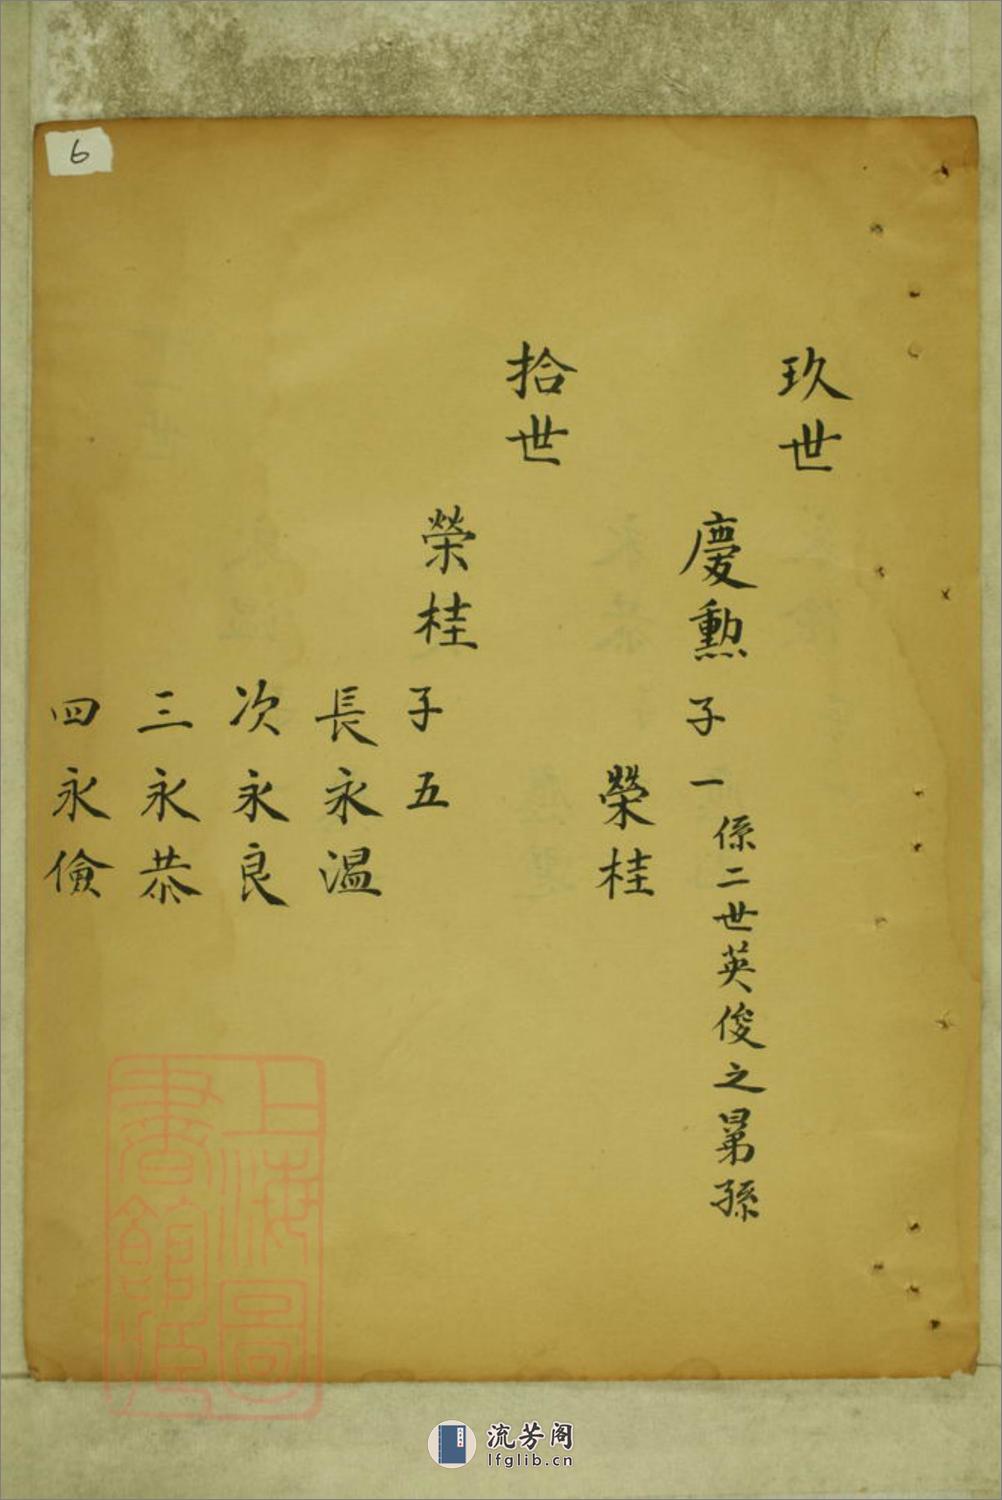 6
玖世
慶勲 子一 係二世英俊之晜孫
榮桂
拾世
榮桂 子五
長永温
次永良
三永恭
四永儉
上海圖
書館藏
流芳阁
lfglib.cn